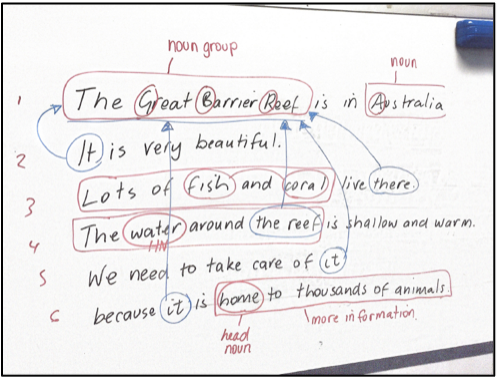 noun group
noun
1 The Great Barrier Reef is in Australia
2 It is very beautiful.
3 Lots of fish and coral live there.
4 The water around the reef is shallow and warm.
HN
5 We need to take care of it
6 because it is home to thousands of animals.
head noun
more information.